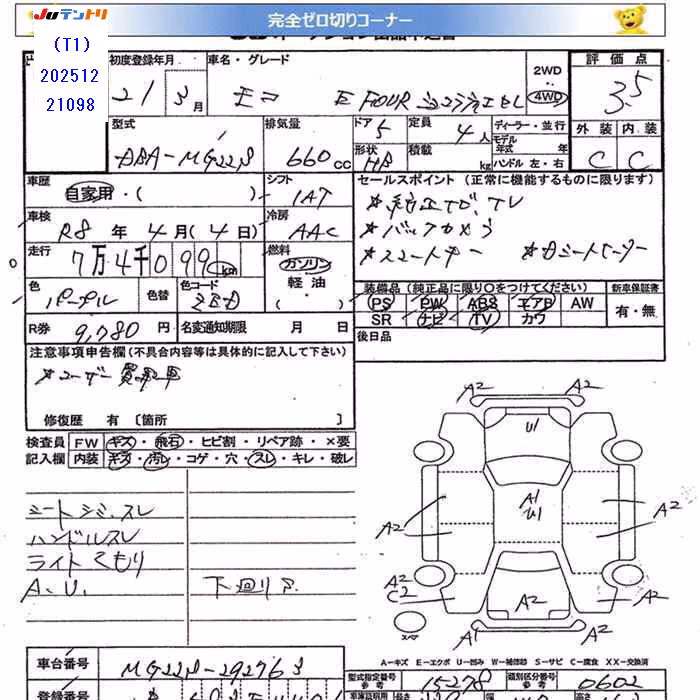 JUテントリ
完全ゼロ切りコーナー
(T1)
202512
21098
初度登録年月 車名・グレード 2WD 4WD 評価点
21 3月 モコ E FOUR 3.5
型式 排気量 ドア 定員 ディーラー・並行 外装 内装
DBA-MG22S 660cc 5 4人 モデル年式 年式 C C
形状 積載 kg ハンドル 左・右
HB
車歴 シフト セールスポイント (正常に機能するものに限ります)
自家用・( ) IAT ★純正ナビ、TV
車検 冷房 ★バックカメラ
R8年4月(4日) AAC ★スマートキー ★シートヒーター
走行 燃料
7万4千099km ガソリン
軽油
・( )
色 色替 色コード 装備品 (純正品に限り○をつけてください) 新車保証書
パープル ZBD PS PW ABS エアB AW 有・無
SR ナビ TV カワ
R券 9,780円 名変通知期限 月 日 後日品
注意事項申告欄 (不具合内容等は具体的に記入して下さい)
★ユーザー買取車
修復歴 有 〔箇所 〕
検査員 FW キズ・飛石・ヒビ割・リペア跡・×要
記入欄 内装 キズ・汚レ・コゲ・穴・スレ・キレ・破レ
A2 A2
U1
シートシミ、スレ A1 U1 A2 A2
ハンドルスレ
ライトくもり
A、U、 下回りサ
A2 C2 A2
A2
スペア A1 A2
A-キズ E-エクボ U-凹み W-補修跡 S-サビ C-腐食 XX-交換済
車台番号 MG22S-292763
型式指定番号 参考 15278 類別区分番号 参考 0602
登録番号